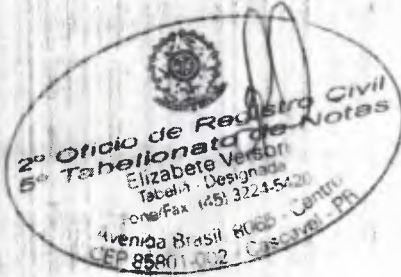 2º Oficio de Registro Civil
5º Tabelionato de Notas
Elizabete Versori
Tabeliã - Designada
Fone/Fax (45) 3224-5420
Avenida Brasil 8065 - Centro
CEP 85801-002 - Cascavel - PR